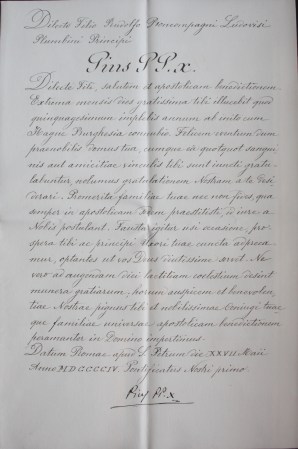 Dilecto Filio Rudolfo Boncompagni Ludovisi
Plumbini Principi
Pius PP. X.
Dilecte Fili, salutem et apostolicam benedictionem.
Extrema mensis dies gratissima tibi illucebit quod
quinquagesimum impleatis annum ab inito cum
Agnete Burghesia connubio. Felicem eventum dum
praenobilis domus tua, cumque ea quotquot sangui-
nis aut amicitiae vinculis tibi sunt iuncti gratu-
labuntur, nolumus gratulationem Nostram a te desi-
derari. Promerita familiae tuae nec non fides, qua
semper in apostolicam Sedem praestitisti, id iure a
Nobis postulant. Fausta igitur usi occasione, pro-
spera tibi ac principi uxori tuae cuncta adpreca-
mur, optantes ut vos Deus diutissime servet. Ne
vero ad augendam diei laetitiam coelestium desint
munera gratiarum, horum auspicem et benevolen-
tiae Nostrae pignus tibi et nobilissimae coniugi tuae
que familiae universae apostolicam benedictionem
peramanter in Domino impertimus.
Datum Romae apud S. Petrum die XXVII Maii
Anno MDCCCCIV, Pontificatus Nostri primo.
Pius PP. X